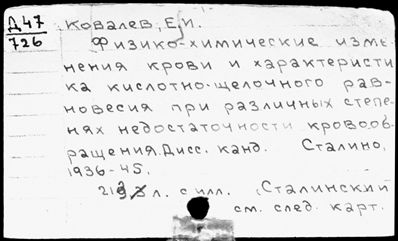 Д47
726
Ковалев, Е.И.
Физико-химические изме-
нения крови и характеристи
ка кислотно-щелочного рав-
новесия при различных степе-
нях недостаточности кровооб-
ращения. Дисс. канд. Сталино,
1936-45.
л. с илл. (Сталинский
см. след. карт.